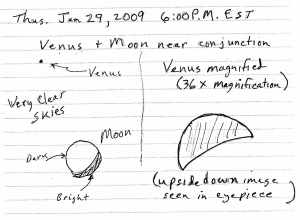 Thus. Jan 29, 2009 6:00 P.M. EST
Venus + Moon near conjunction
Venus
Very Clear
skies
Moon
Dark
Bright
Venus magnified
(36x magnification)
(upside down image
seen in eyepiece)